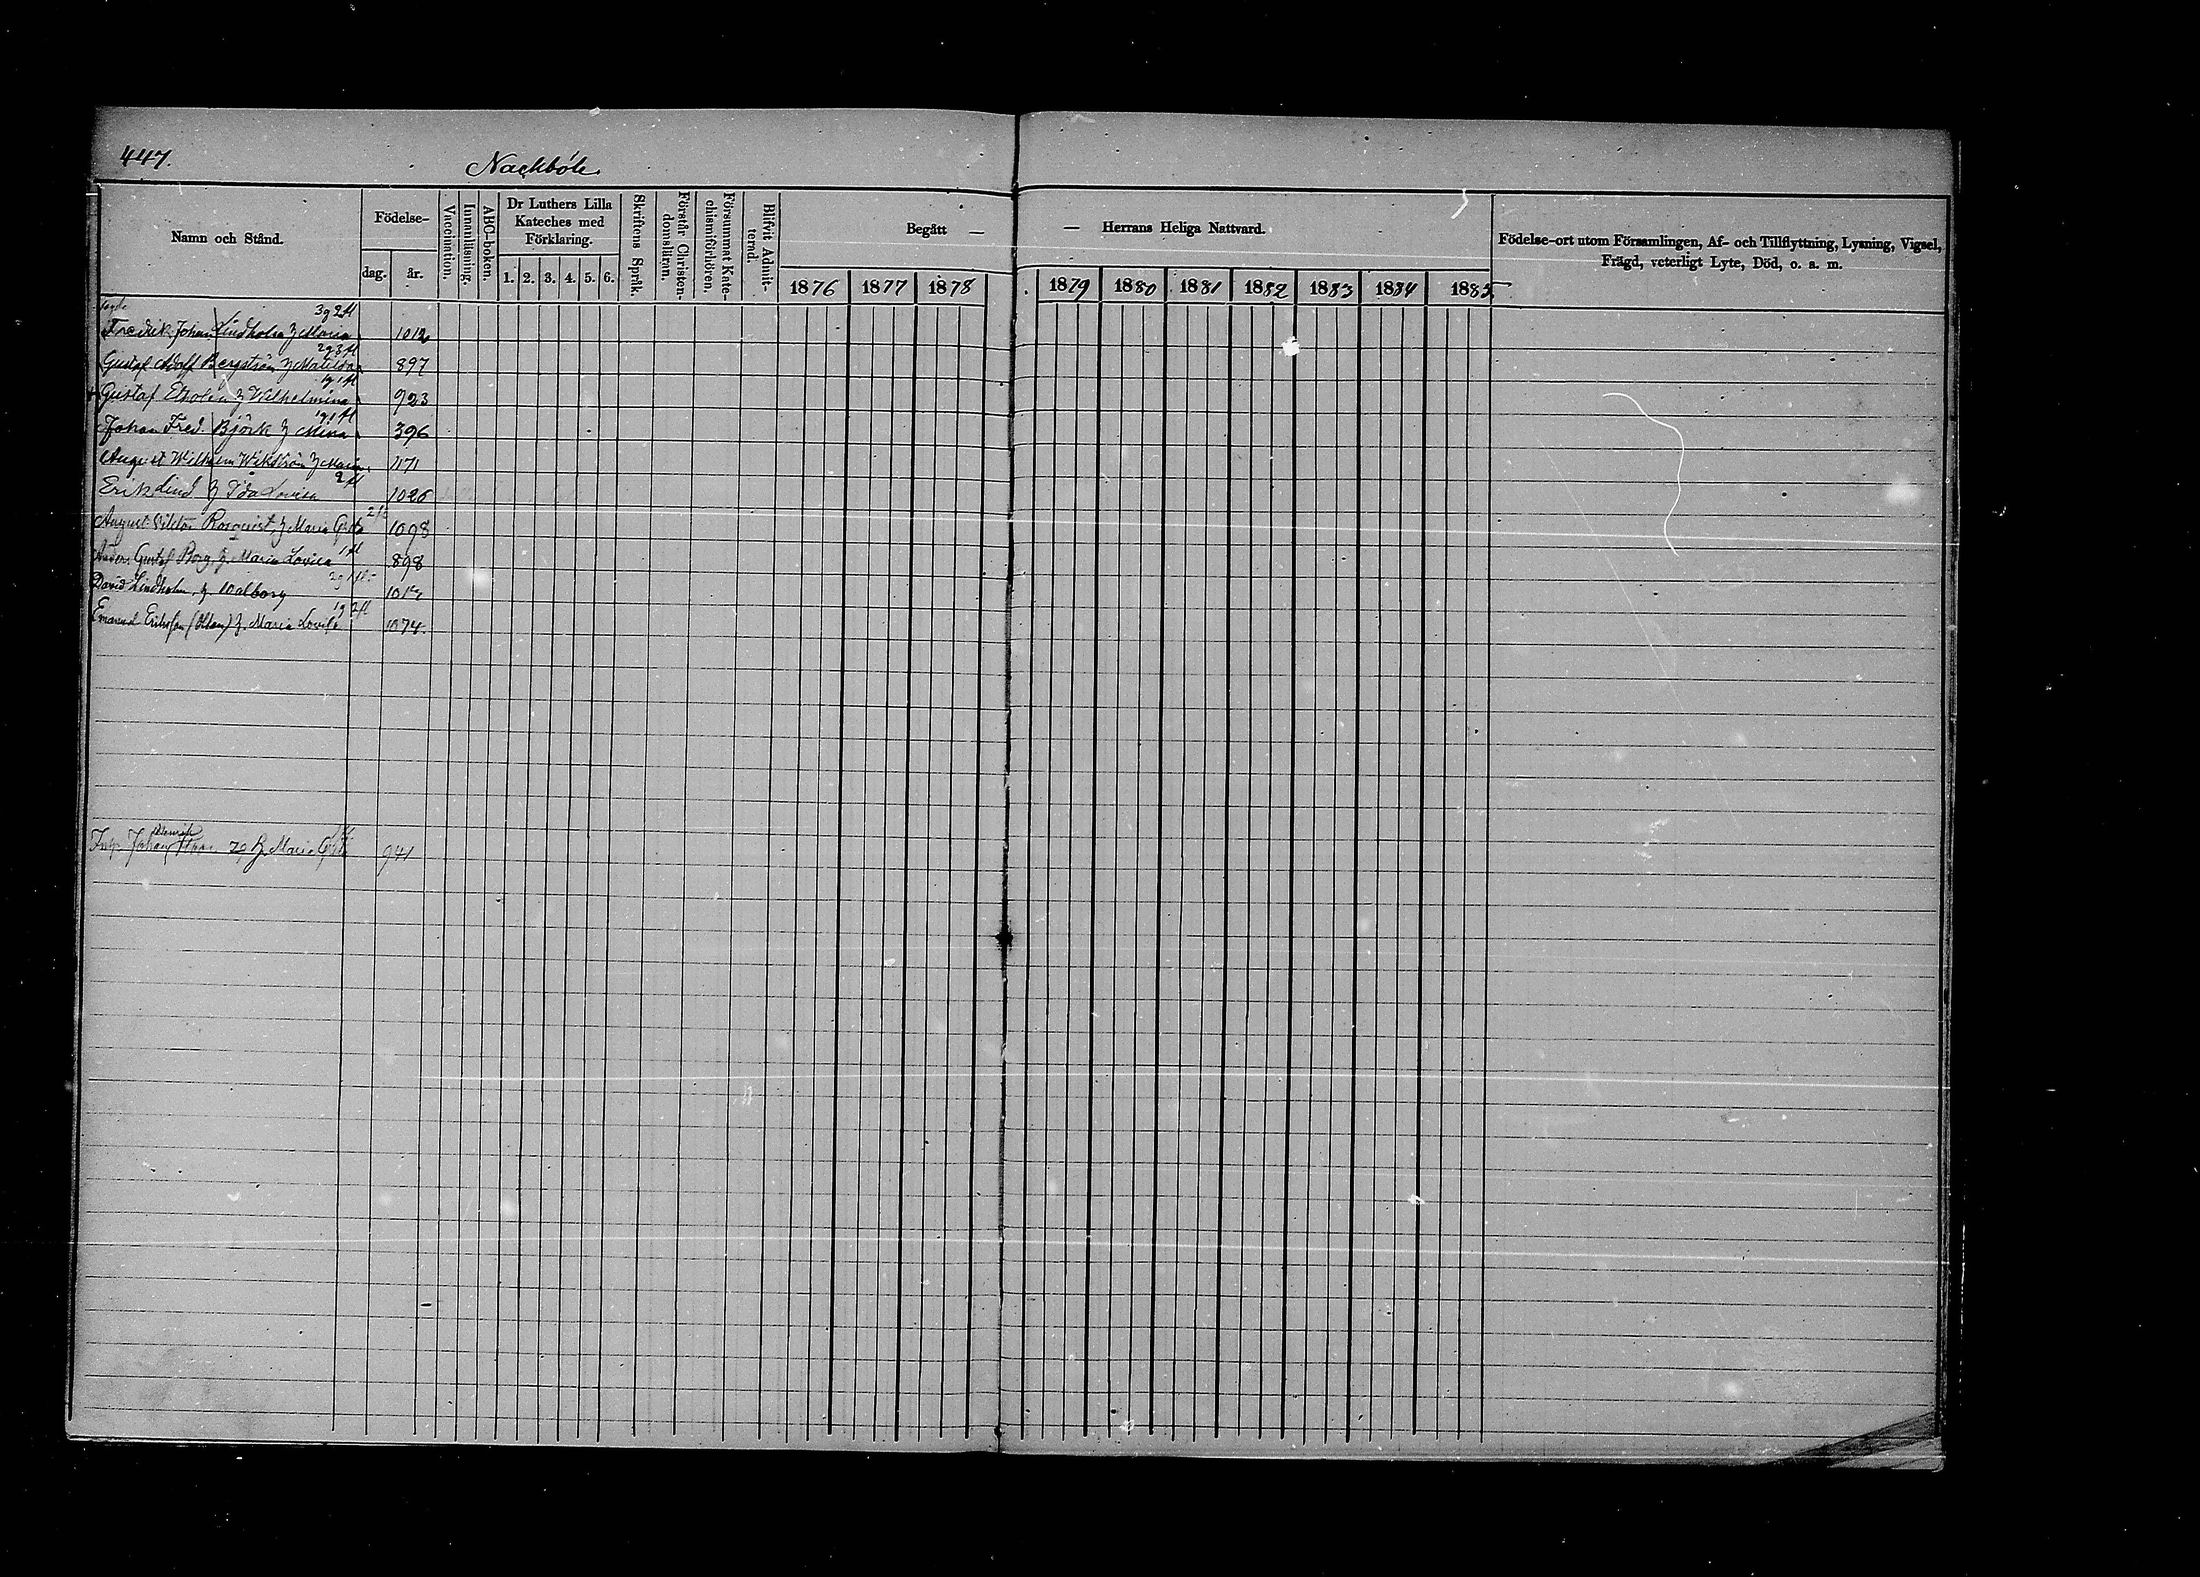 447.
Nackböle
Namn och Stånd.
Födelse-
dag.
år.
Vaccination.
Innanläsning.
ABC-boken.
Dr Luthers Lilla
Kateches med
Förklaring.
1. 2. 3. 4. 5. 6.
Skriftens Språk.
Förstår Christen-
domsläran.
Försummat Kate-
chismiförhören.
Blifvit Admit-
terad.
Begått —
— Herrans Heliga Nattvard.
1876 1877 1878
1879 1880 1881 1882 1883 1884 1885
Födelse-ort utom Församlingen, Af- och Tillflyttning, Lysning, Vigsel,
Frägd, veterligt Lyte, Död, o. a. m.
3g 2fl
Fredrik Johan Lindholm Maria 1012
2g 3fl
Gustaf Adolf Bergström Matilda 897
1g 1fl
Gustaf Wilhelmina 923
1g 1fl
Johan Fred. Björk Mina 396
August Wilhelm Wikström 1171
2fl
Erik Lind Ida Lovisa 1026
August Viktor Rosqvist, Maria 1098
1fl
Gustaf Borg, Maria Lovisa 898
David Lindholm, Walborg
1g 2fl
Emanuel Maria Lovisa 1074.
Johan Maria 941